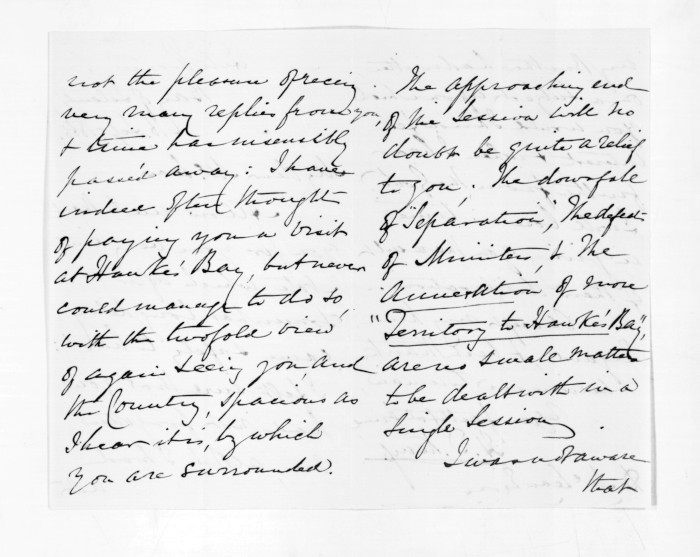 not the pleasure of receivg
very many replies from you,
& time has insensibly
passed away: I have
indeed often thought
of paying you a visit
at Hawke's Bay, but never
could manage to do so,
with the twofold view,
of again seeing you, and
the Country, spacious as
I hear it is, by which
you are surrounded.
The approaching end
of the Session will no
doubt be quite a relief
to you; The downfall
of "Separation", The defeat
of Ministers, & The
Annexation of more
"Territory to Hawke's Bay",
are no small matters
to be dealt with in a
Single Session.
I was not aware
that